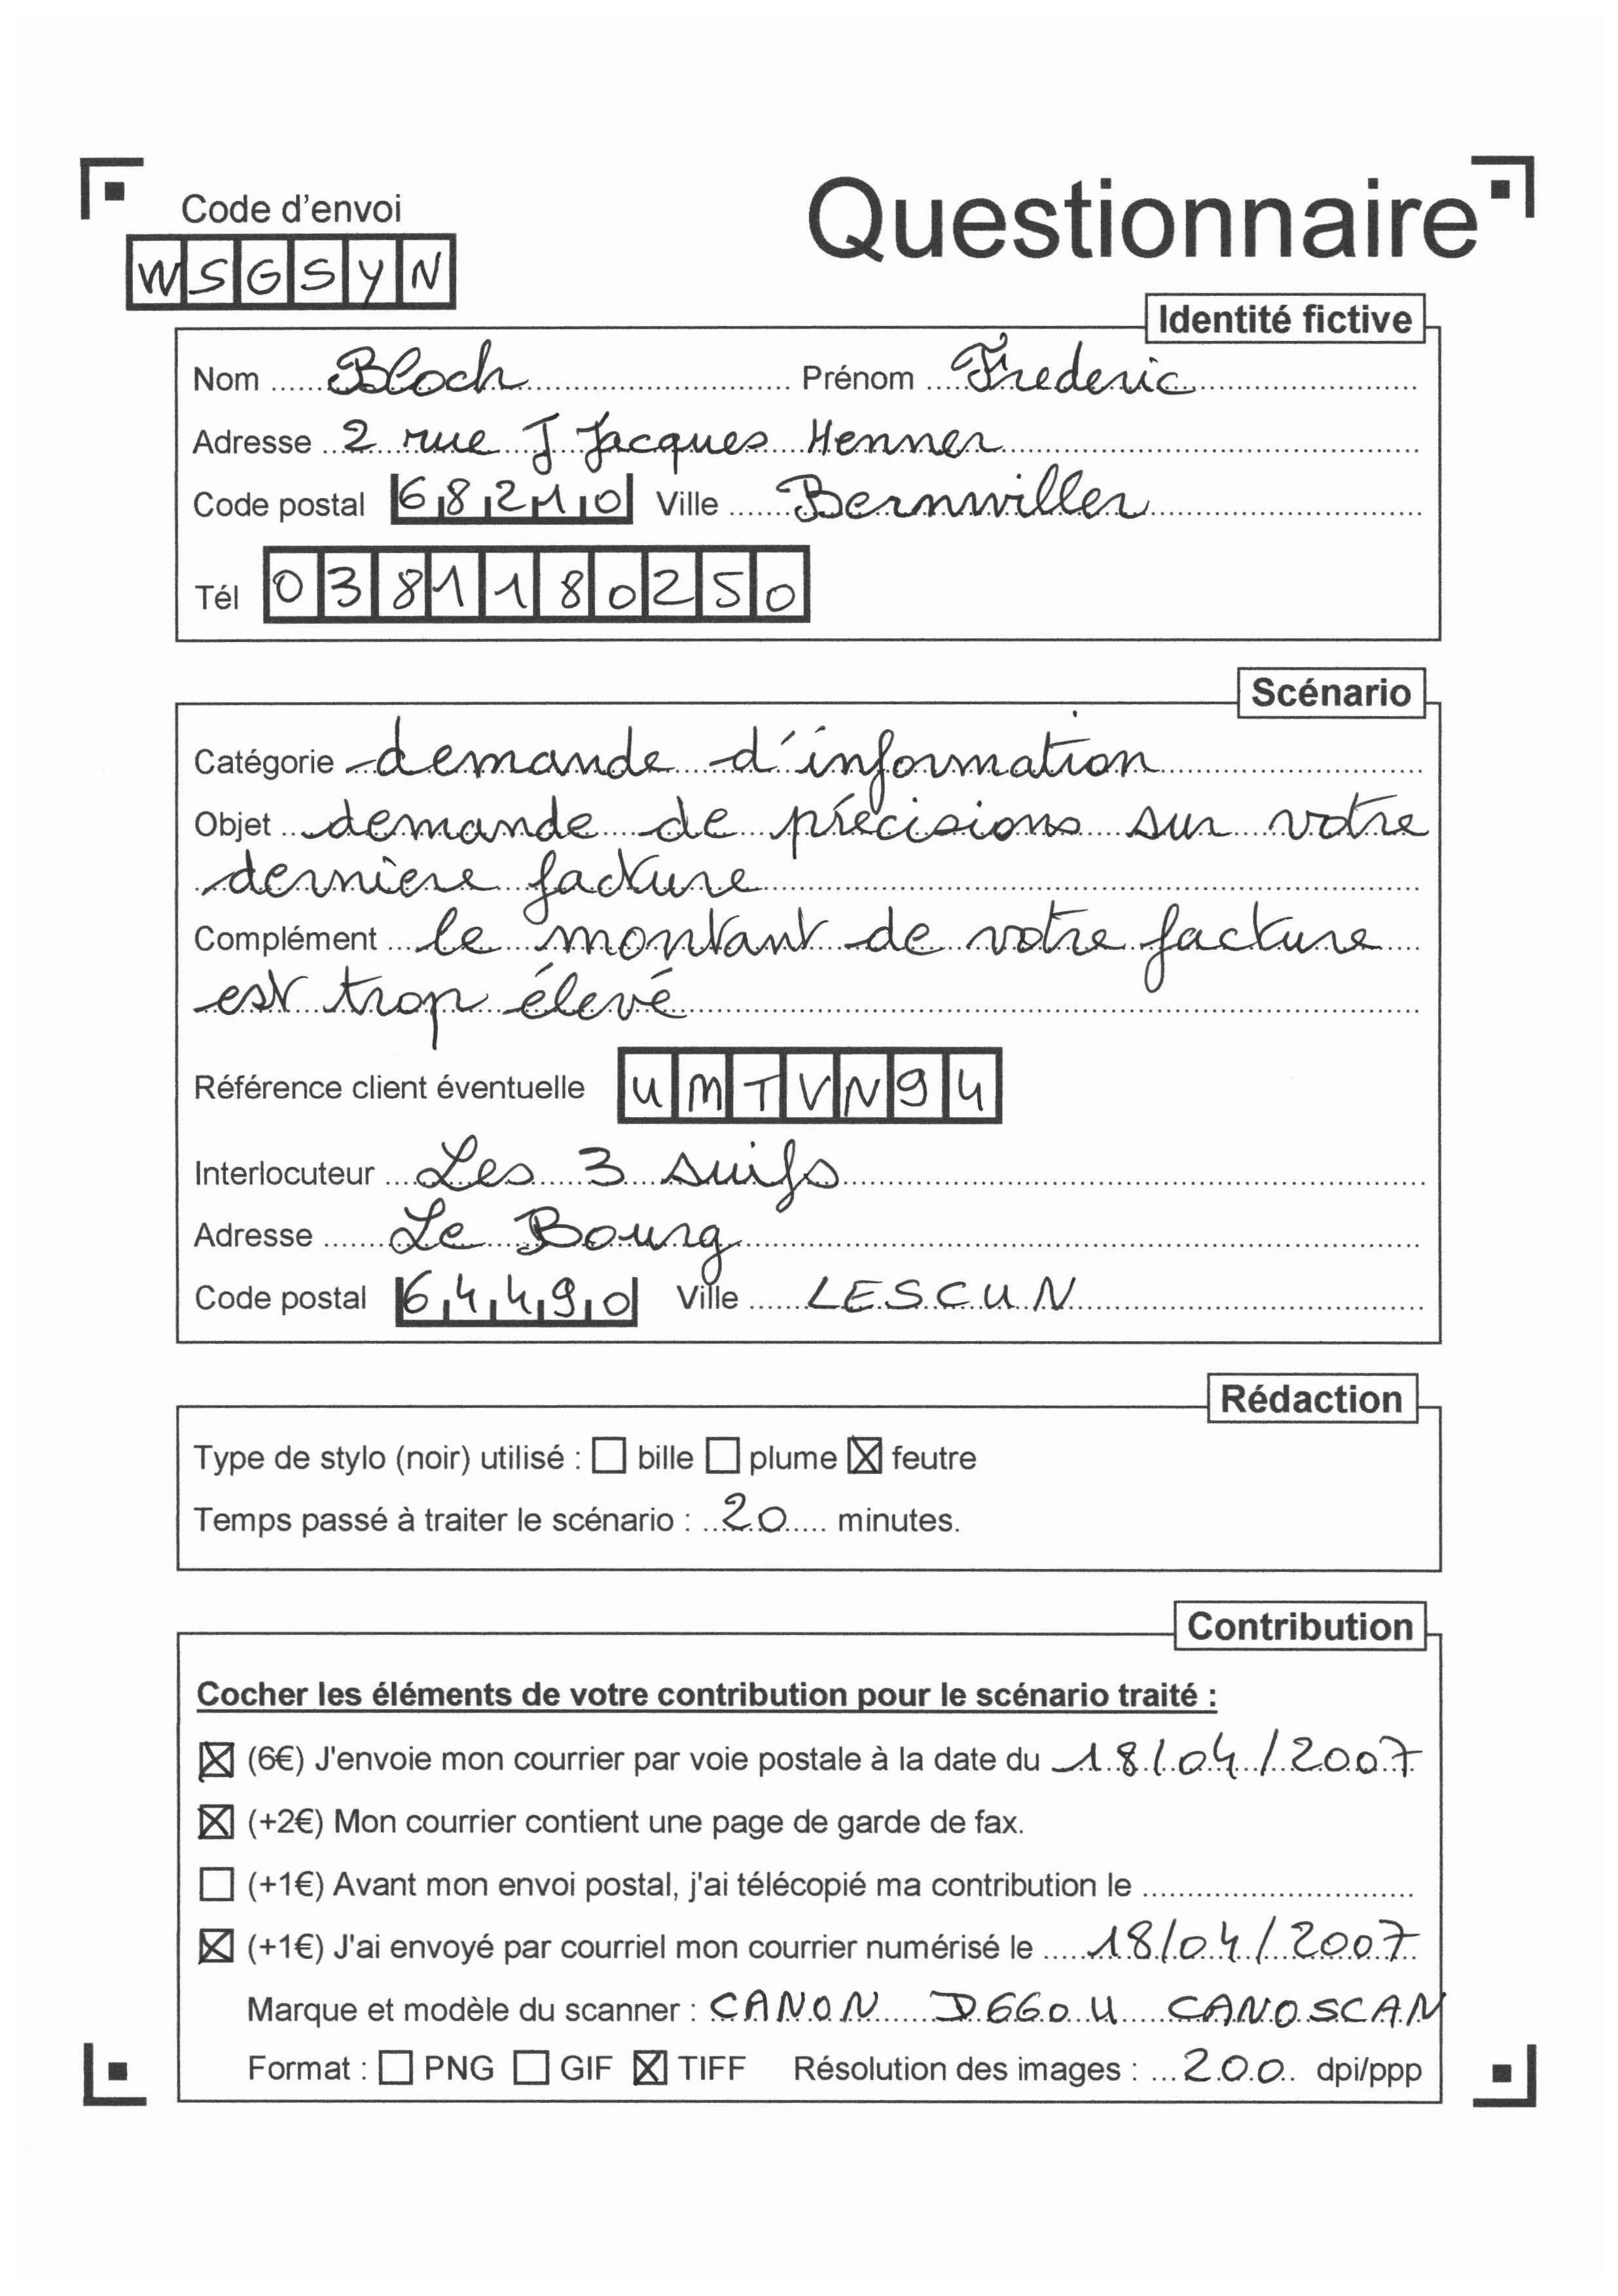 Code d'envoi
Questionnaire
WSGSYN
Identité fictive
Nom Bloch Prénom Frederic
Adresse 2 rue J Jacques Henner
Code postal 68210 Ville Bernwiller
Tél 0381180250
Scénario
Catégorie demande d'information
Objet demande de précisions sur votre
dernière facture
Complément le montant de votre facture
est trop élevé
Référence client éventuelle UMTVN94
Interlocuteur Les 3 suifs
Adresse Le Bourg
Code postal 64490 Ville LESCUN
Rédaction
Type de stylo (noir) utilisé : ☐ bille ☐ plume ☒ feutre
Temps passé à traiter le scénario : 20 minutes.
Contribution
Cocher les éléments de votre contribution pour le scénario traité :
☒ (6€) J'envoie mon courrier par voie postale à la date du 18/04/2007
☒ (+2€) Mon courrier contient une page de garde de fax.
☐ (+1€) Avant mon envoi postal, j'ai télécopié ma contribution le
☒ (+1€) J'ai envoyé par courriel mon courrier numérisé le 18/04/2007
Marque et modèle du scanner : CANON D660U CANOSCAN
Format : ☐ PNG ☐ GIF ☒ TIFF Résolution des images : 200 dpi/ppp